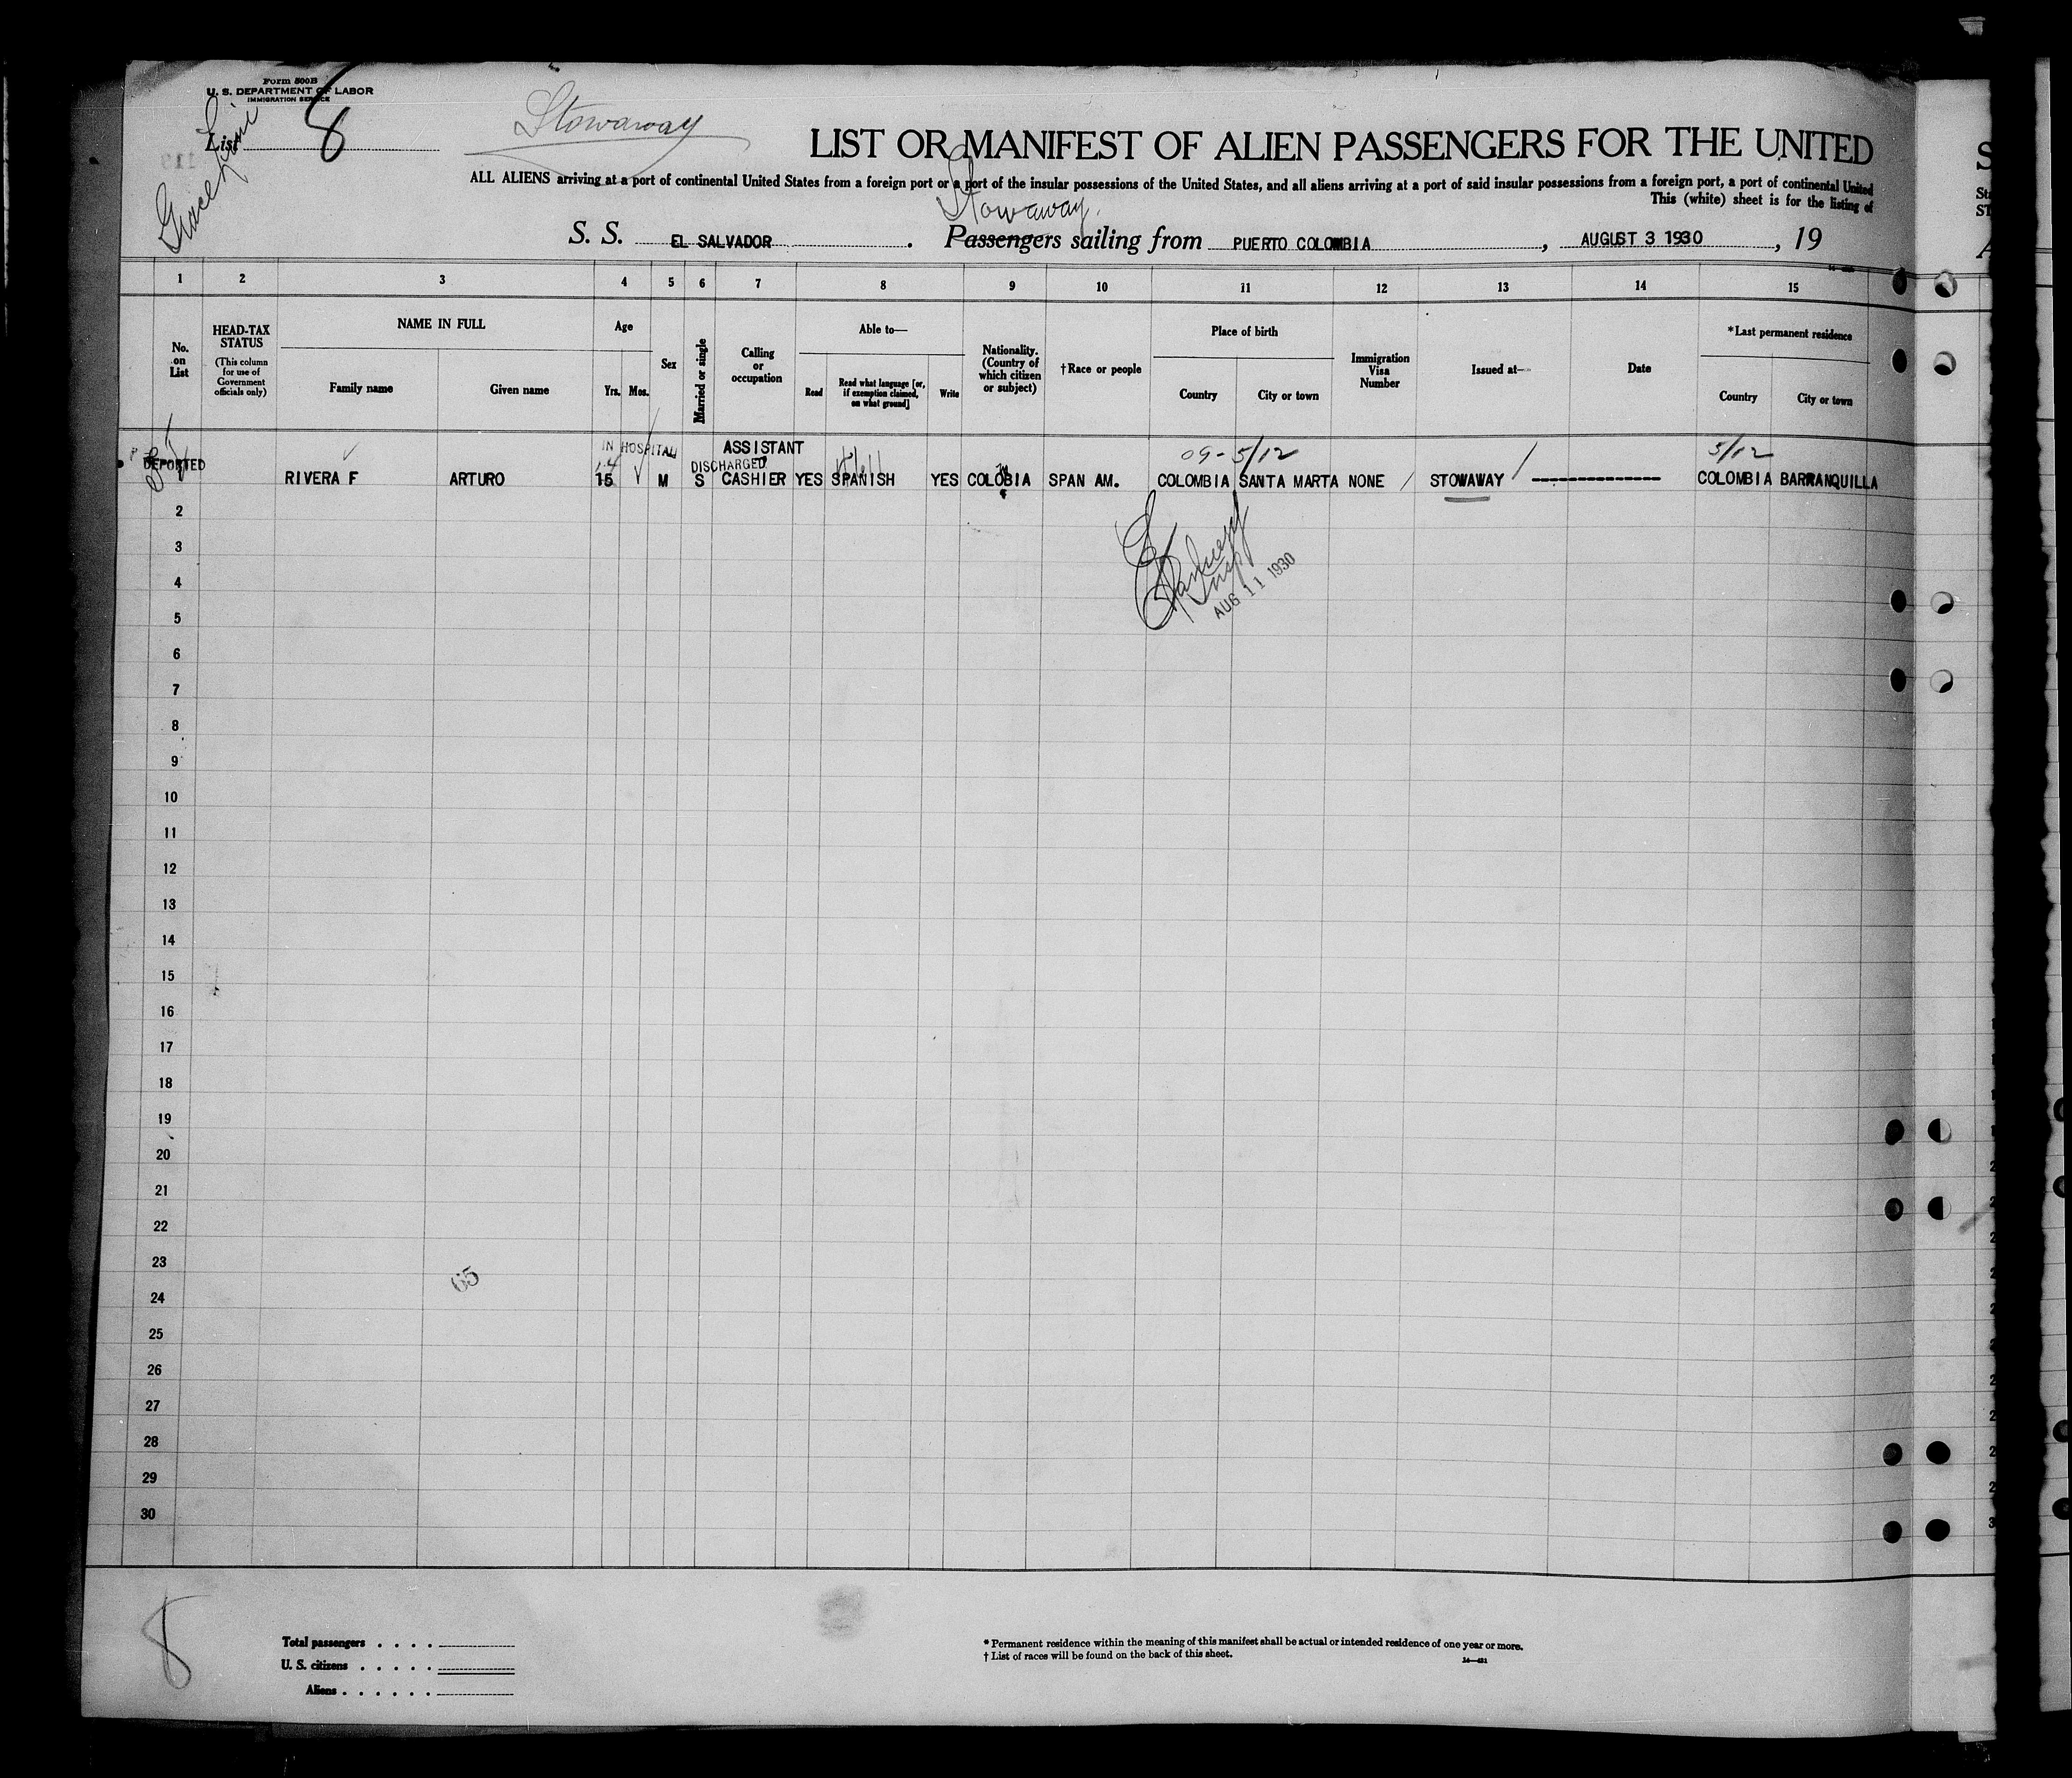 Form 500B
U. S. DEPARTMENT OF LABOR
IMMIGRATION SERVICE
List 8
Grace Line
Stowaway
LIST OR MANIFEST OF ALIEN PASSENGERS FOR THE UNITED
ALL ALIENS arriving at a port of continental United States from a foreign port or a port of the insular possessions of the United States, and all aliens arriving at a port of said insular possessions from a foreign port, a port of continental United
This (white) sheet is for the listing of
Stowaway.
S. S. EL SALVADOR . Passengers sailing from PUERTO COLOMBIA , AUGUST 3 1930 , 19
1 2 3 4 5 6 7 8 9 10 11 12 13 14 15
No. on List
HEAD-TAX STATUS (This column for use of Government officials only)
NAME IN FULL
Family name Given name
Age
Yrs. Mos.
Sex
Married or single
Calling or occupation
Able to—
Read Read what language [or, if exemption claimed, on what ground] Write
Nationality. (Country of which citizen or subject)
†Race or people
Place of birth
Country City or town
Immigration Visa Number
Issued at—
Date
*Last permanent residence
Country City or town
IN HOSPITAL ASSISTANT 09-5/12 5/12
DEPORTED 14 DISCHARGED
RIVERA F ARTURO 15 M S CASHIER YES SPANISH YES COLOBIA SPAN AM. COLOMBIA SANTA MARTA NONE STOWAWAY ---------------- COLOMBIA BARRANQUILLA
2
3
AUG 11 1930
4
5
6
7
8
9
10
11
12
13
14
15
16
17
18
19
20
21
22
23
65
24
25
26
27
28
29
30
8
Total passengers . . . .
U. S. citizens . . . . .
Aliens . . . . . .
* Permanent residence within the meaning of this manifest shall be actual or intended residence of one year or more.
† List of races will be found on the back of this sheet.
14—481